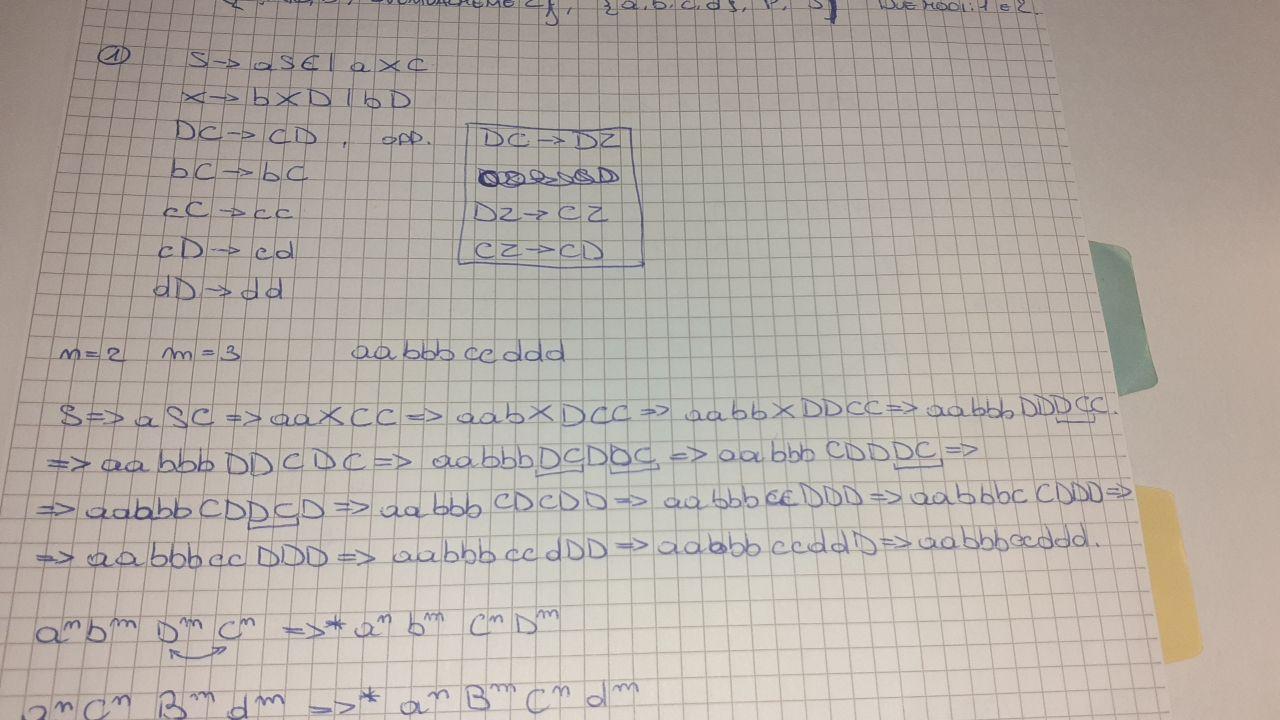 {a,b,c,d}, P, S}
① S → aSC | aXC
X → bXD | bD
DC → CD , opp. DC → DZ
bC → bC
cC → cc DZ → CZ
cD → cd CZ → CD
dD → dd
n=2 m=3 aabbbccddd
S => aSC => aaXCC => aabXDCC => aabbXDDCC => aabbbDDDCC.
=> aabbbDDCDC => aabbbDCDDC => aabbbCDDDC =>
=> aabbbCDDCD => aabbbCDCDD => aabbbCCDDD => aabbbcCDDD =>
=> aabbbccDDD => aabbbccdDD => aabbbccddD => aabbbccddd.
aⁿbᵐ DᵐCⁿ =>* aⁿ bᵐ CⁿDᵐ
aⁿCⁿ Bᵐdᵐ =>* aⁿ Bᵐ Cⁿ dᵐ